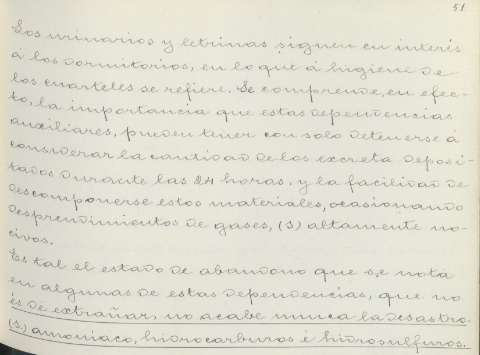 51
Los urinarios y letrinas siguen en interés
á los dormitorios, en lo que á higiene de
los cuarteles se refiere. Se comprende, en efec-
to, la importancia que estas dependencias
auxiliares, pueden tener con solo detenerse á
considerar la cantidad de los excreta deposi-
tados durante las 24 horas. y la facilidad de
descomponerse estos materiales, ocasionando
desprendimientos de gases, (1) altamente no-
civos.
Es tal el estado de abandono que se nota
en algunas de estas dependencias, que no
es de extrañar, no acabe nunca la desastro-
(1) amoniaco, hidrocarburos é hidrosulfuros.